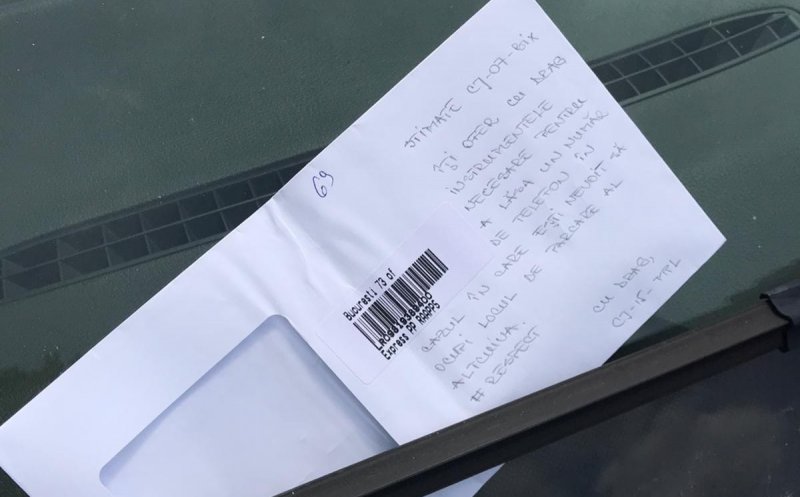 69
STIMATE CJ-07-BIX
ÎȚI OFER CU DRAG
INSTRUMENTELE
NECESARE PENTRU
A LĂSA UN NUMĂR
DE TELEFON ÎN
CAZUL ÎN CARE EȘTI NEVOIT SĂ
OCUPI LOCUL DE PARCARE AL
ALTCUIVA.
# RESPECT
CU DRAG,
CJ-15-PPL
Bucuresti 73 of
Express PP RAPPS